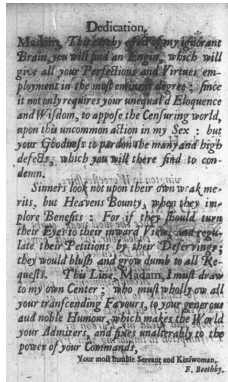 Dedication.
Madam, This unhappy effect of my ignorant
Brain, you will find an Engin, which will
give all your Perfections and Virtues em-
ployment in the most eminent degree: since
it not only requires your unequal'd Eloquence
and Wisdom, to appose the Censuring world,
upon this uncommon action in my Sex: but
your Goodness to pardon the many and high
defects, which you will there find to con-
demn.
Sinners look not upon their own weak me-
rits, but Heavens Bounty, when they im-
plore Benefits: For if they should turn
their Eyes to their inward View, and regu-
late their Petitions by their Deservings;
they would blush and grow dumb to all Re-
quests. This Line, Madam, I must draw
to my own Center; who must wholly ow all
your transcending Favours, to your generous
and noble Humour, which makes the World
your Admirers, and fixes unalterably to the
power of your Commands,
Your most humble Servant and Kinswoman,
F. Boothby.